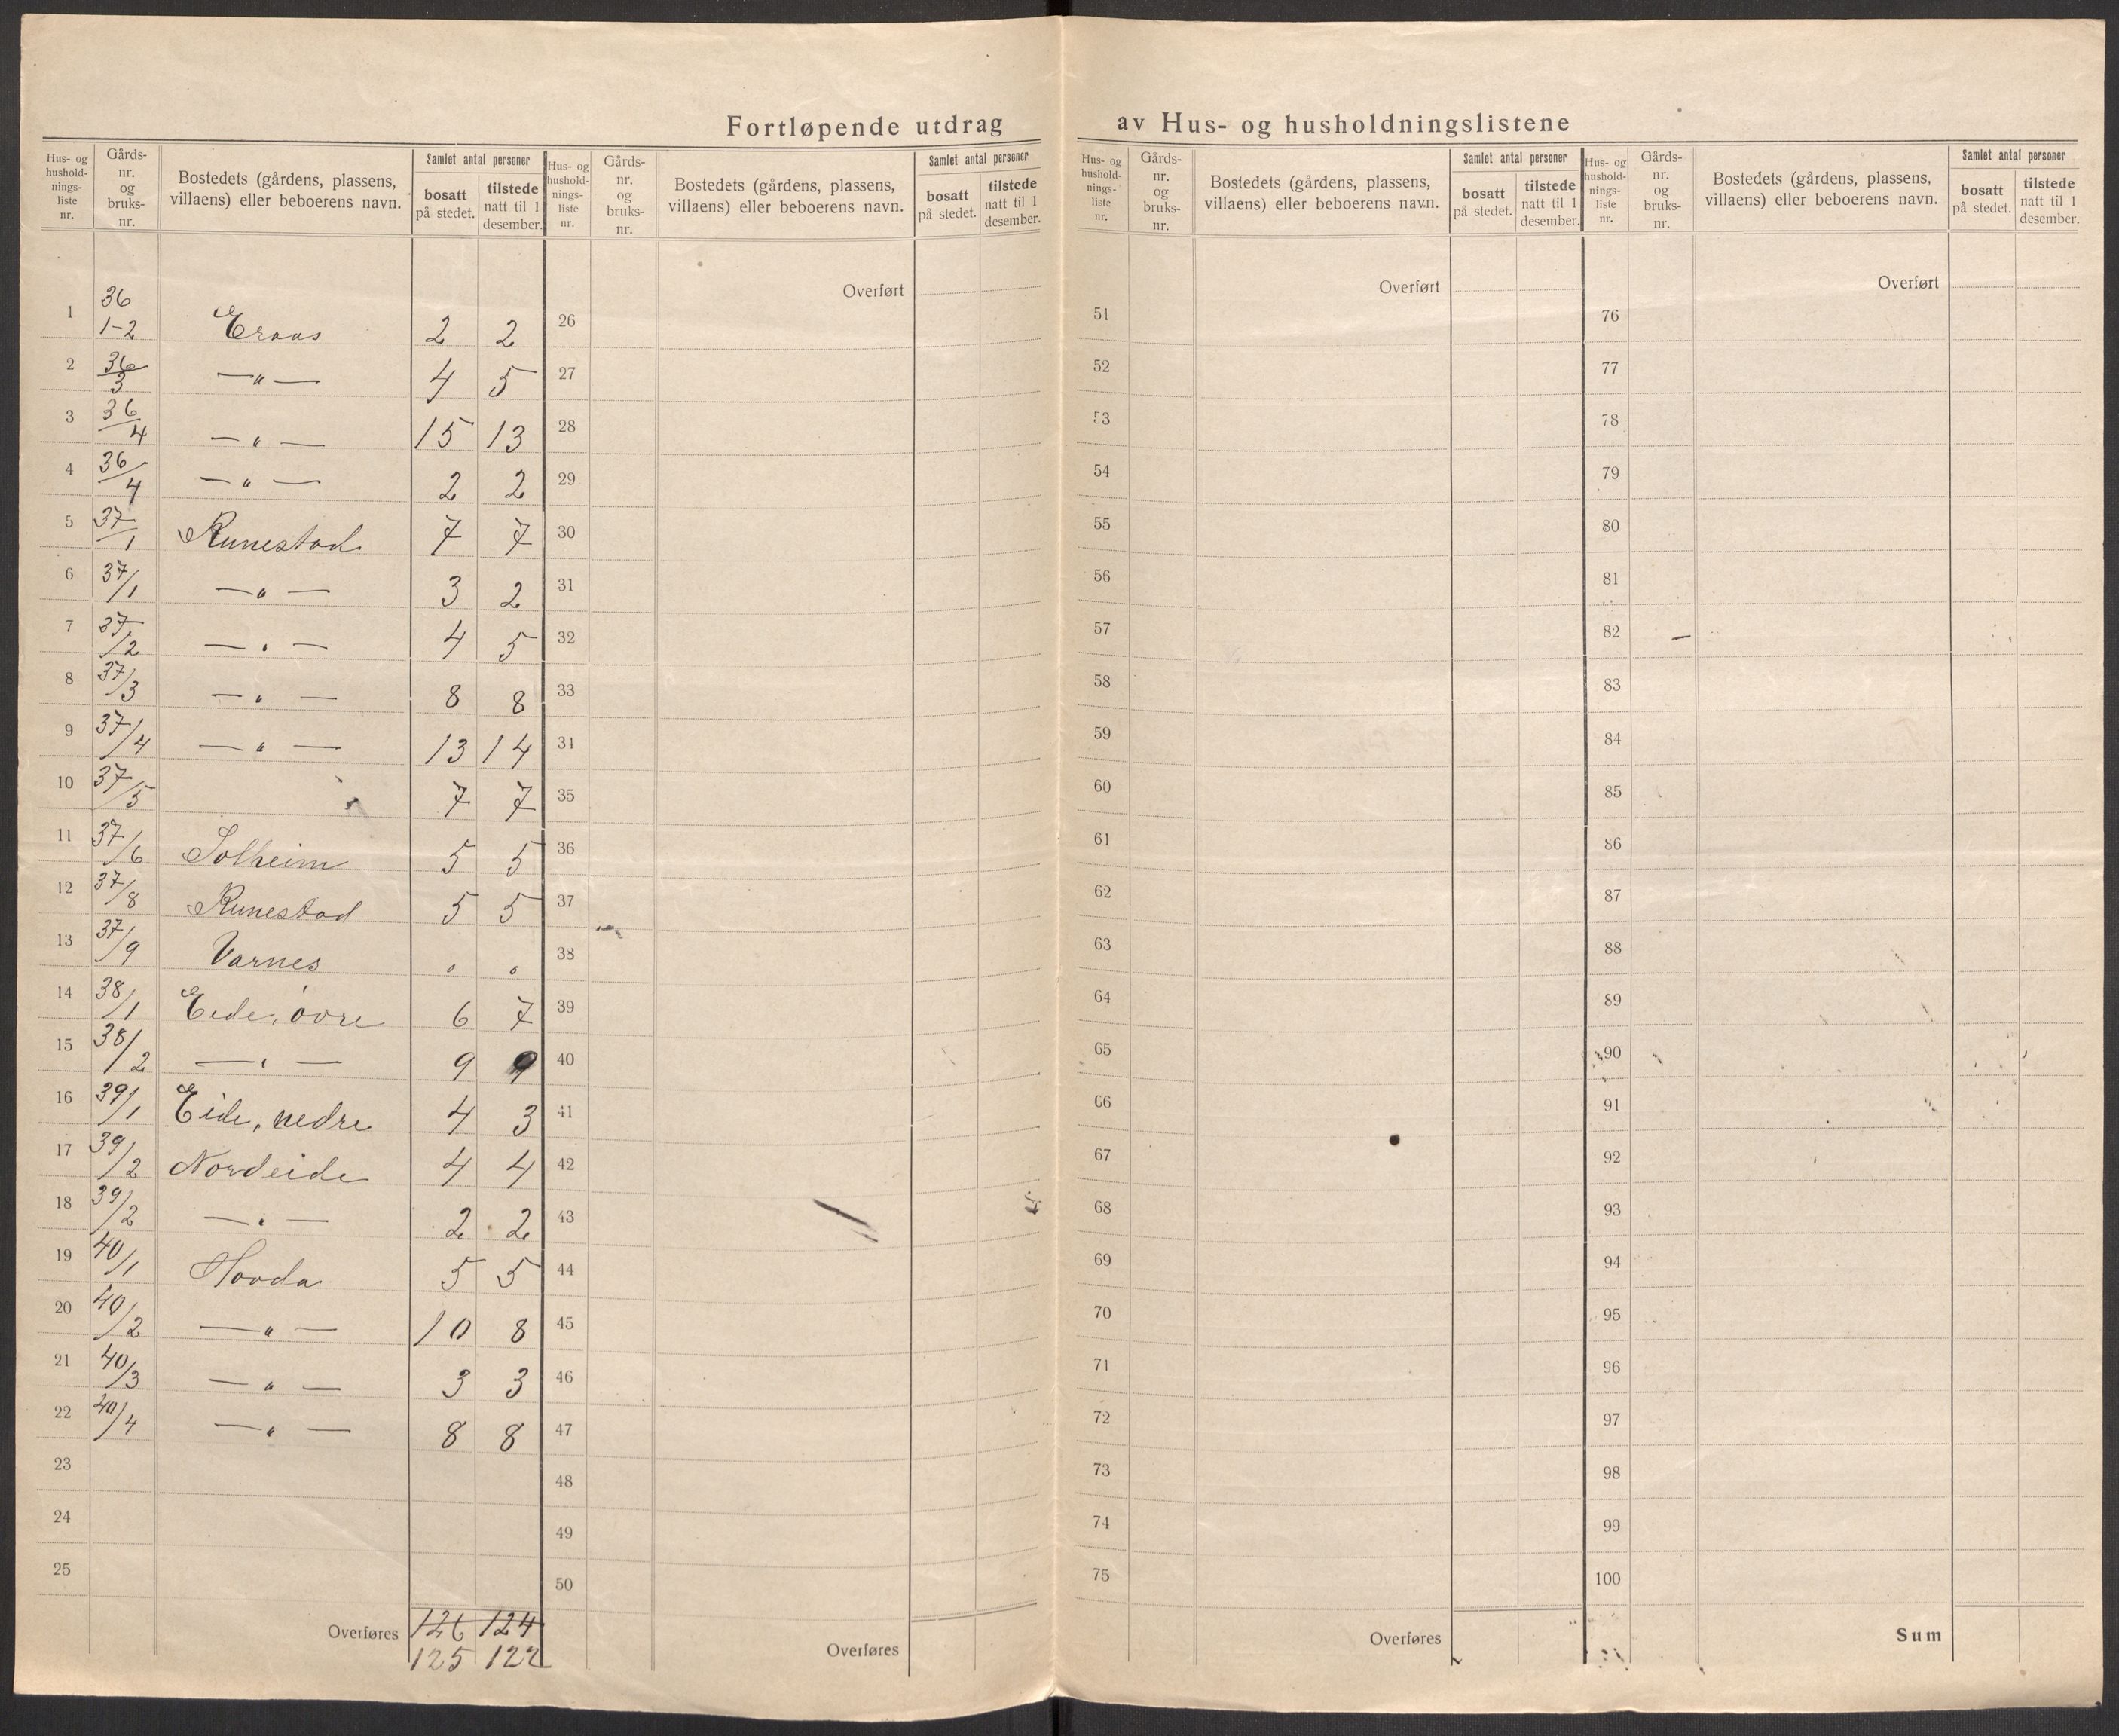 Fortløpende utdrag av Hus- og husholdningslistene
Hus- og hushold-nings-liste nr. | Gårds-nr. og bruks-nr. | Bostedets (gårdens, plassens, villaens) eller beboerens navn. | Samlet antal personer | bosatt på stedet. | tilstede natt til 1 desember.
1 36 1-2 Eraas 2 2
2 36/3 —"— 4 5
3 36/4 —"— 15 13
4 36/4 —"— 2 2
5 37/1 Runestad 7 7
6 37/1 —"— 3 2
7 37/2 —"— 4 5
8 37/3 —"— 8 8
9 37/4 —"— 13 14
10 37/5 7 7
11 37/6 Solheim 5 5
12 37/8 Runestad 5 5
13 37/9 Varnes " "
14 38/1 Eide, óvre 6 7
15 38/2 —"— 9 9
16 39/1 Eide, nedre 4 3
17 39/2 Nordeide 4 4
18 39/2 —"— 2 2
19 40/1 Hovda 5 5
20 40/2 —"— 10 8
21 40/3 —"— 3 3
22 40/4 —"— 8 8
23
24
25
Overføres 126 124
125 122
Hus- og hushold-nings-liste nr. | Gårds-nr. og bruks-nr. | Bostedets (gårdens, plassens, villaens) eller beboerens navn. | Samlet antal personer | bosatt på stedet. | tilstede natt til 1 desember.
Overført
26
27
28
29
30
31
32
33
34
35
36
37
38
39
40
41
42
43
44
45
46
47
48
49
50
Overføres
Hus- og hushold-nings-liste nr. | Gårds-nr. og bruks-nr. | Bostedets (gårdens, plassens, villaens) eller beboerens navn. | Samlet antal personer | bosatt på stedet. | tilstede natt til 1 desember.
Overført
51
52
53
54
55
56
57
58
59
60
61
62
63
64
65
66
67
68
69
70
71
72
73
74
75
Overføres
Hus- og hushold-nings-liste nr. | Gårds-nr. og bruks-nr. | Bostedets (gårdens, plassens, villaens) eller beboerens navn. | Samlet antal personer | bosatt på stedet. | tilstede natt til 1 desember.
Overført
76
77
78
79
80
81
82
83
84
85
86
87
88
89
90
91
92
93
94
95
96
97
98
99
100
Sum